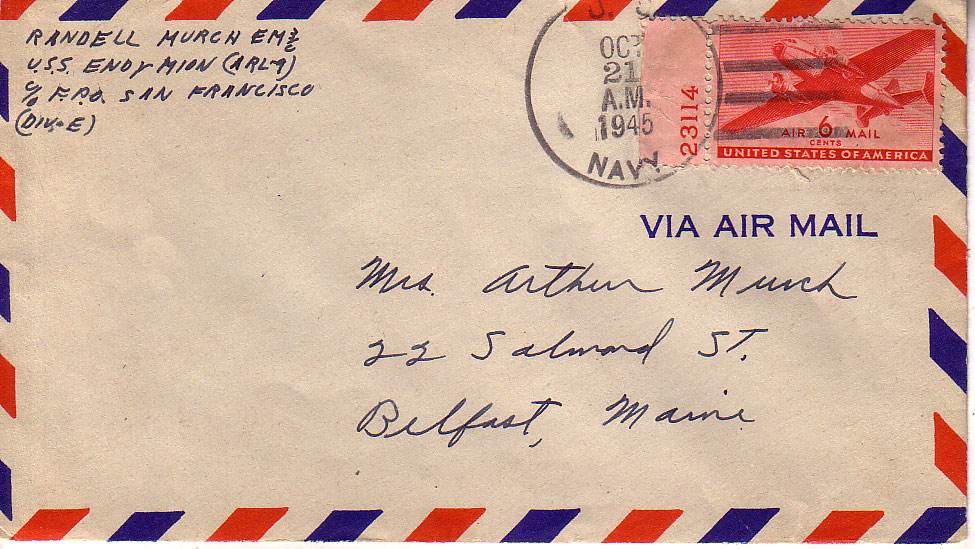 RANDELL MURCH EM 3/c
U.S.S. ENDYMION (ARL-9)
c/o F.P.O. SAN FRANCISCO
(DIV-E)
U. S.
OCT
21
A.M.
1945
NAVY
23114
AIR 6 MAIL
CENTS
UNITED STATES OF AMERICA
VIA AIR MAIL
Mrs. Arthur Murch
22 Salmond ST.
Belfast, Maine